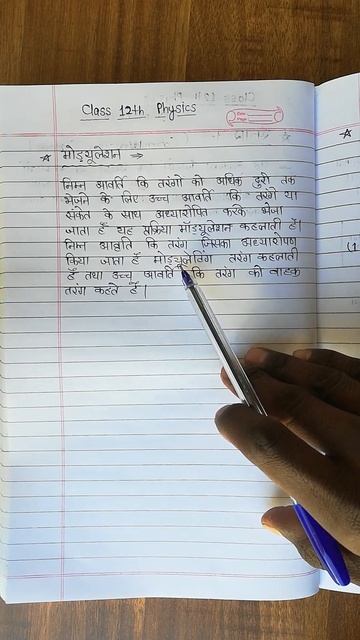 Class 12th Physics
☆ मोड्यूलेशन →
निम्न आवर्ति कि तरंगो को अधिक दुरी तक
भेजने के लिए उच्च आवर्ति कि तरंगे या
संकेत के साथ अध्यारोपित करके भेजा
जाता हैं यह प्रक्रिया मॉड्यूलेशन कहलाती हैं।
निम्न आवृति कि तरंग जिसका अध्यारोपण
किया जाता हैं मोड्यूलेटिंग तरंग कहलाती
हैं तथा उच्च आवर्ति कि तरंग को वाहक
तरंग कहते हैं।
☆
(1